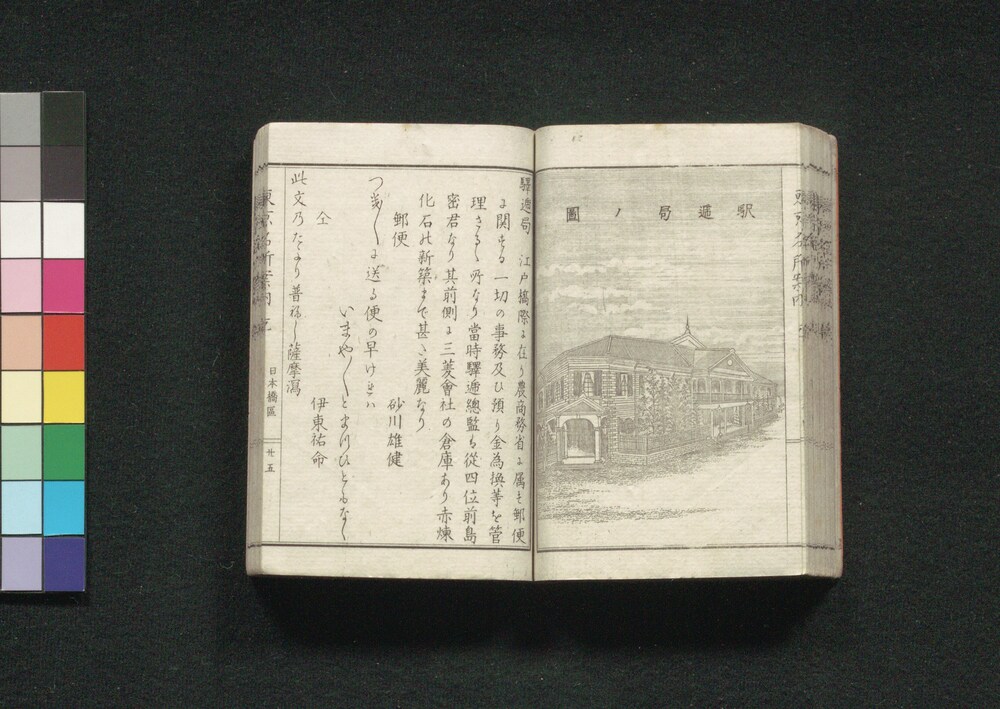 駅逓局ノ圖
東京名所案内
驛逓局 江戸橋際に在り農商務省に属す郵便
に関する一切の事務及ひ預り金為換等を管
理さるゝ所なり當時驛逓總監ハ從四位前島
密君なり其前側に三菱會社の倉庫あり赤煉
化石の新築まて甚た美麗なり
郵便 砂川雄健
つき〳〵に送る便の早けれハ
いまや〳〵とまつひともなし
仝 伊東祐命
此文乃たより普ねし薩摩瀉
東京名所案内
日本橋區
廿五